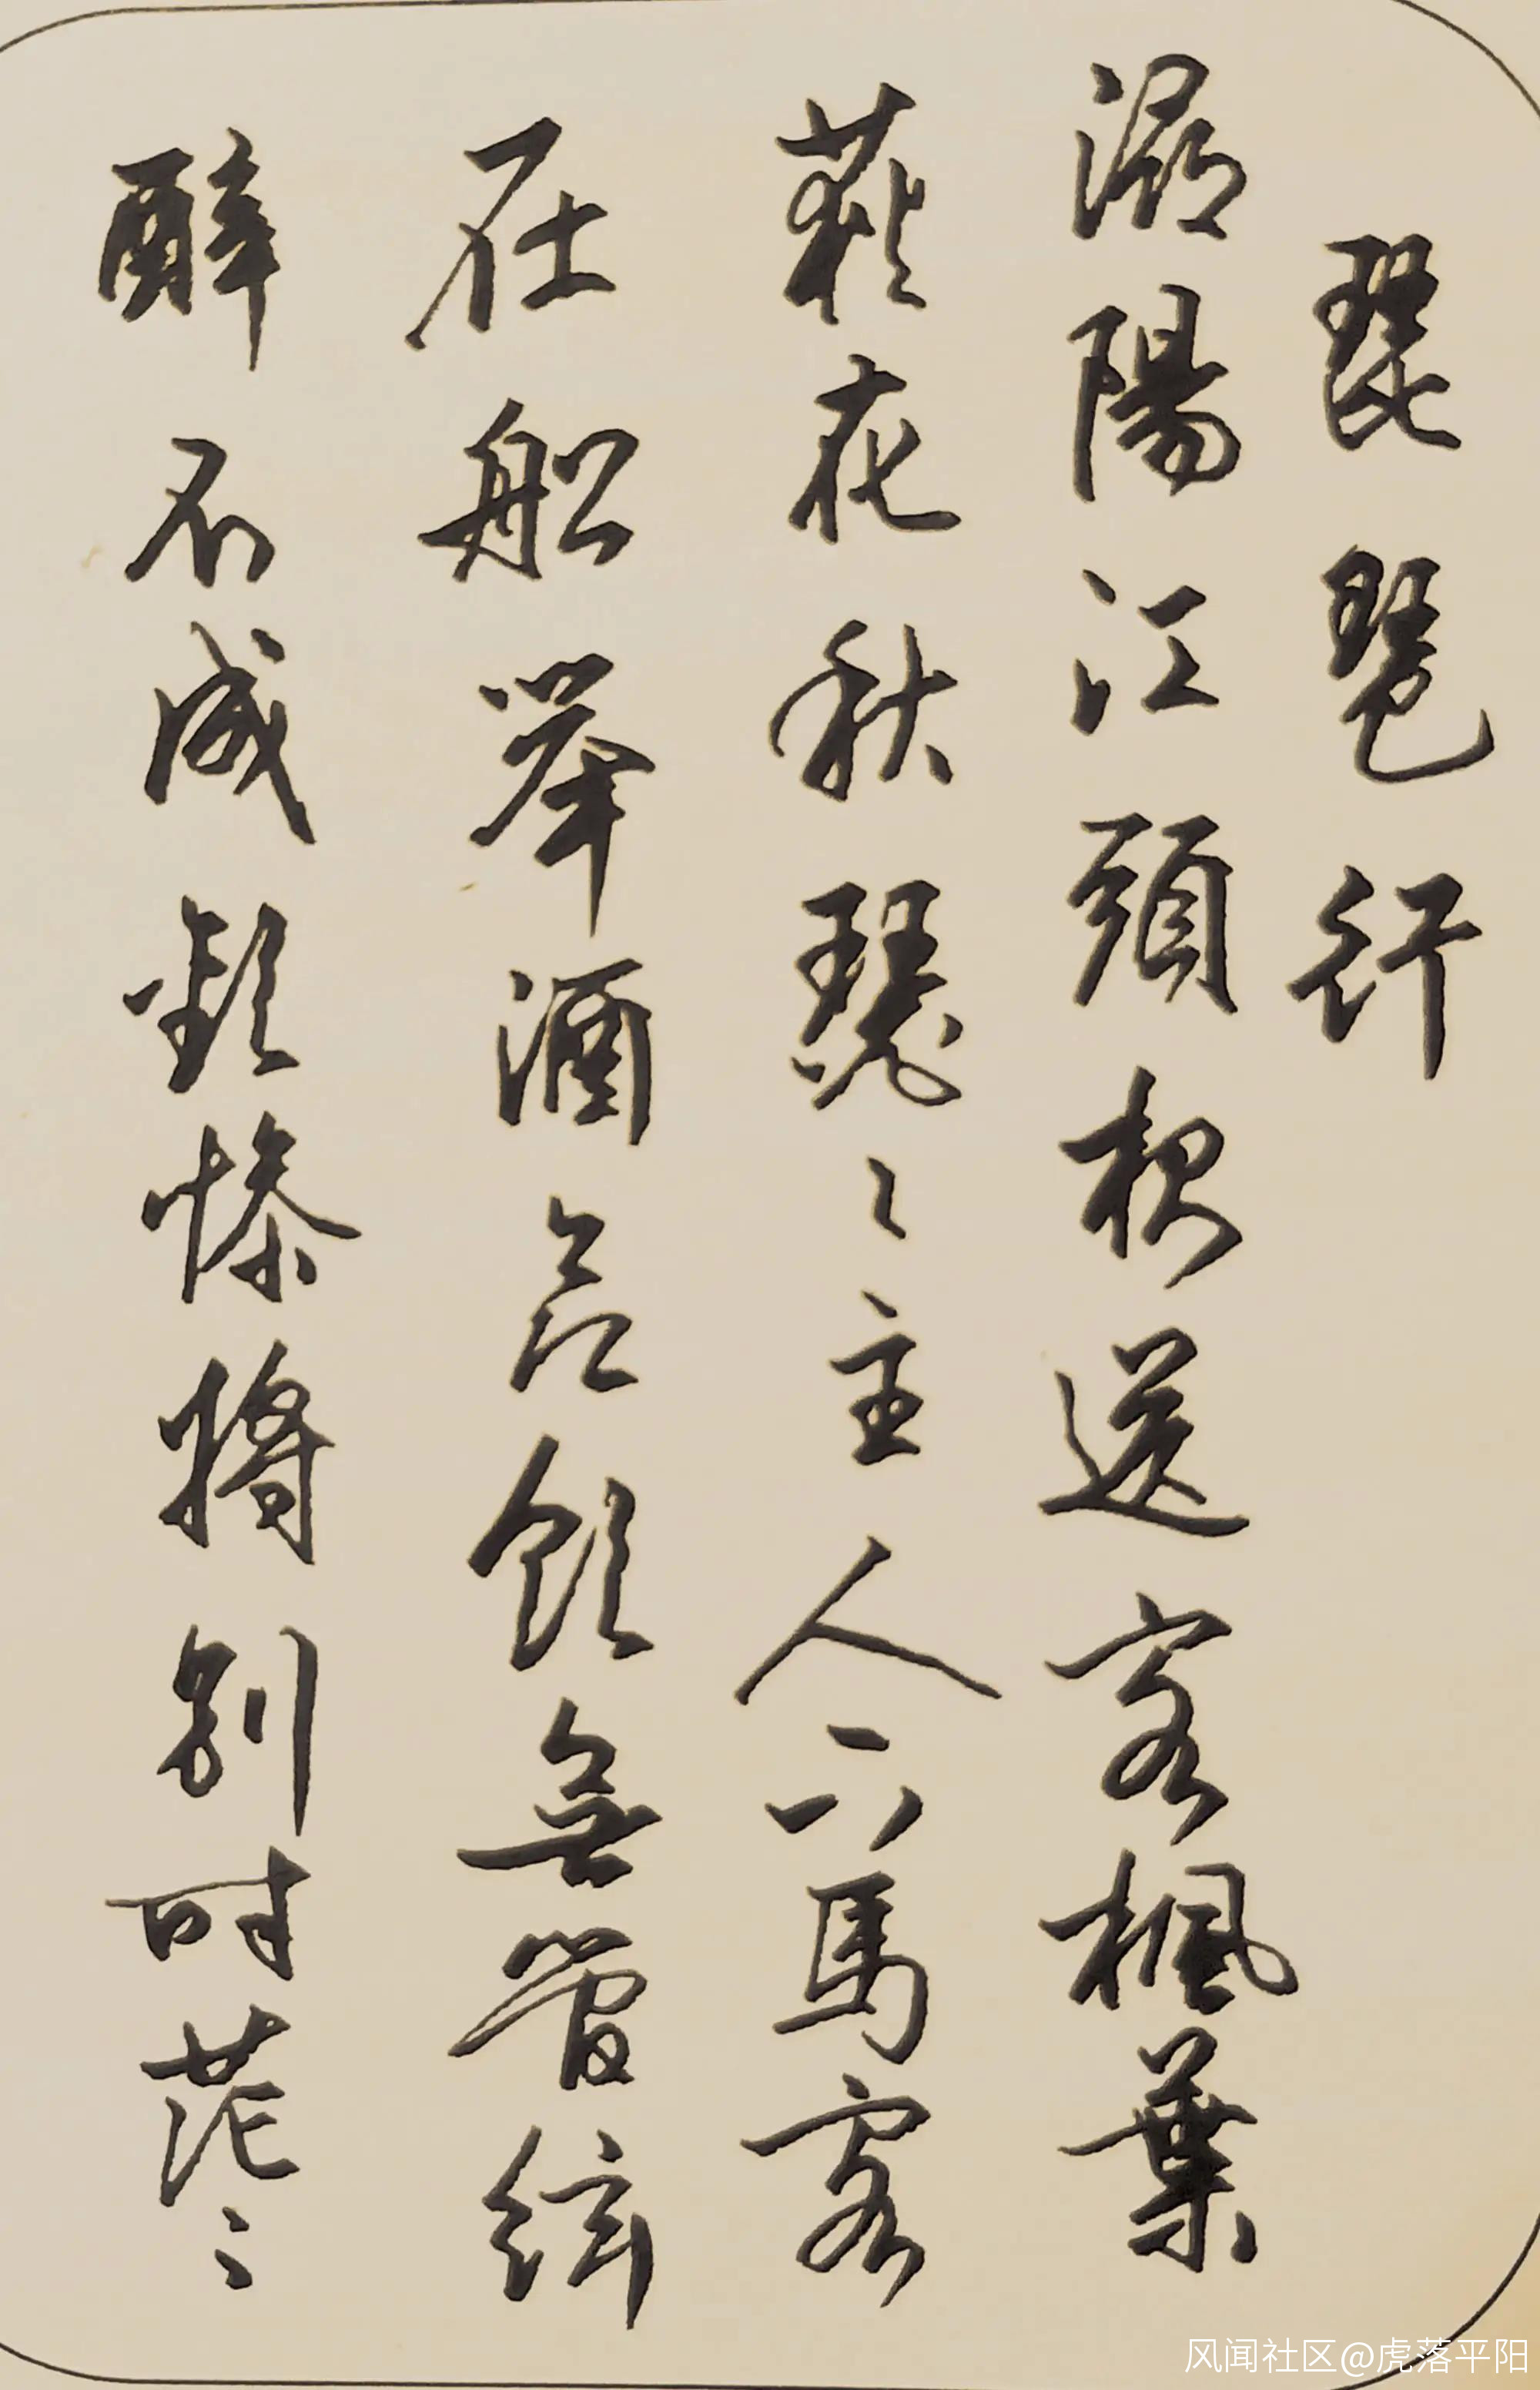 琵琶行
潯陽江頭夜送客楓葉
荻花秋瑟々主人下馬客
在船举酒欲飲無管絃
醉不成歡慘將别时茫々
风闻社区@虎落平阳